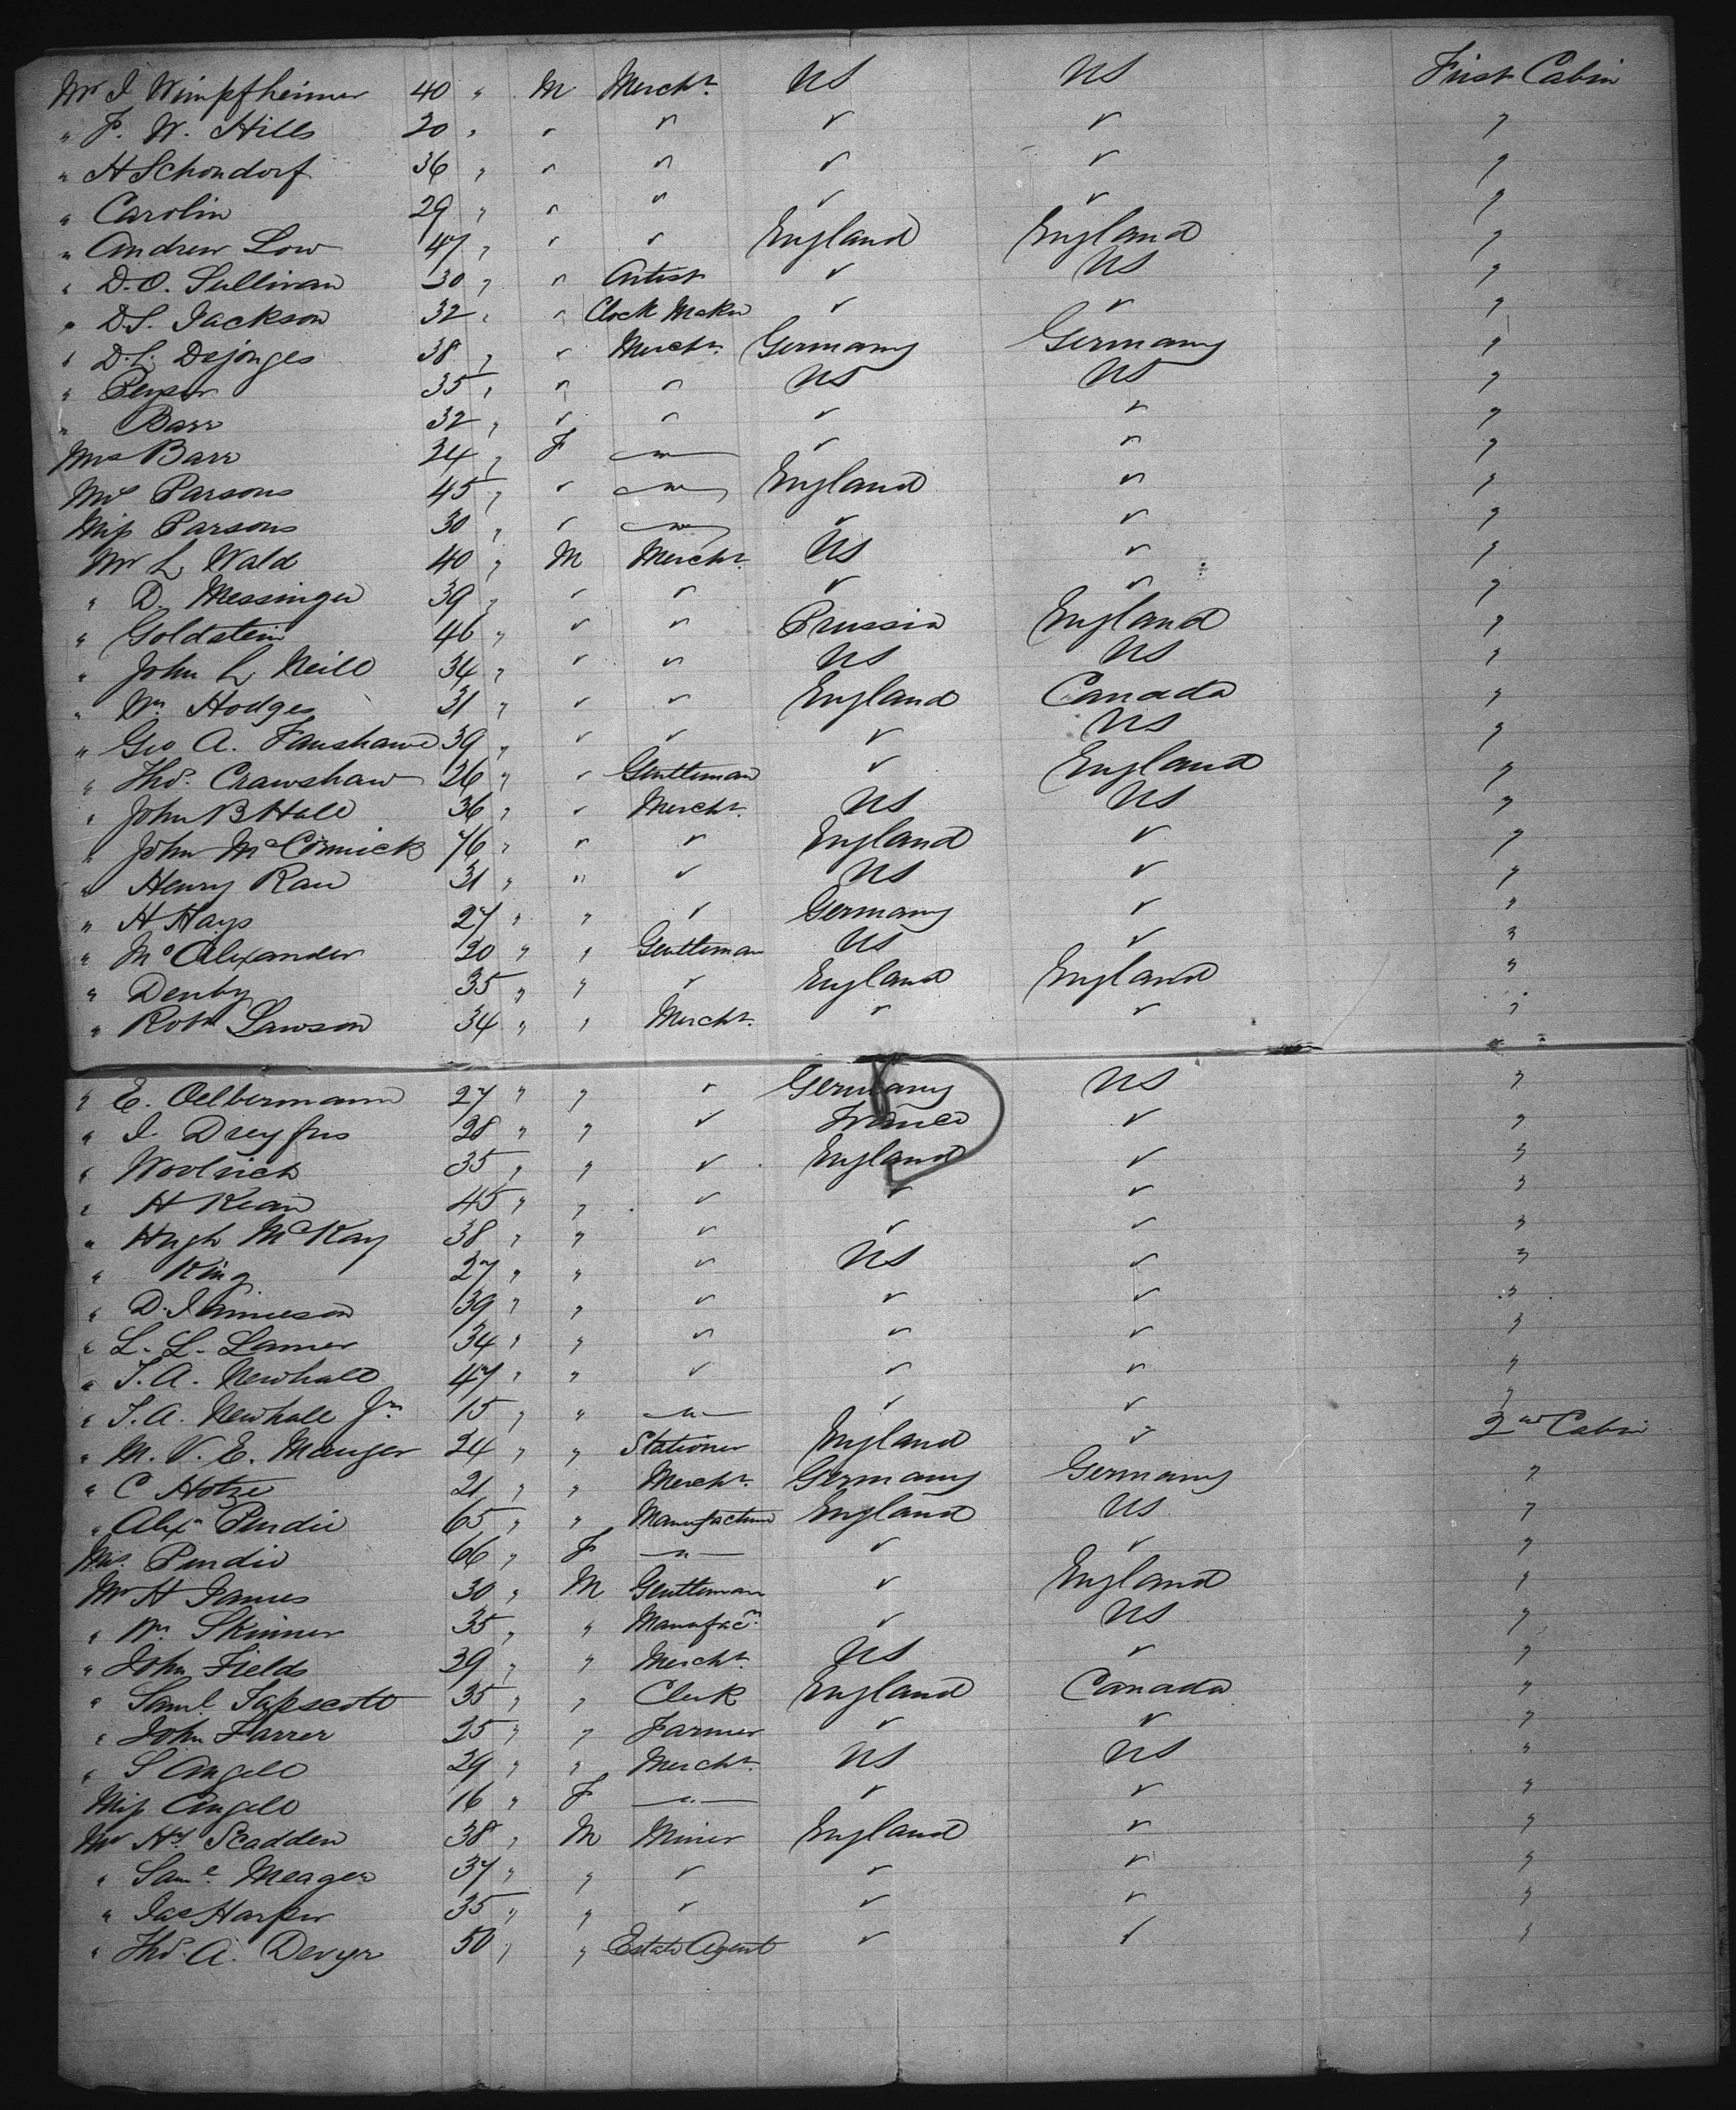 Mr I Wimpfheimer 40 " M Mercht. US US First Cabin
" F. W. Hills 20 " " " " " "
" H Schondorf 36 " " " " " "
" Carolin 29 " " " " " "
" Andrew Low 47 " " " England England "
" D. O. Sullivan 30 " " Artist " US "
" D. S. Jackson 32 " " Clock Maker " " "
" D. L. Dejonges 38 " " Mercht. Germany Germany "
" Peyser 35 " " " US US "
" Barr 32 " " " " " "
Mrs Barr 24 " F — " " "
Mrs Parsons 45 " " — England " "
Miss Parsons 30 " " — " " "
Mr L. Wald 40 " M Mercht. US " "
" D. Messinger 39 " " " " " "
" Goldstein 46 " " " Prussia England "
" John L. Neill 34 " " " US US "
" Wm. Hodges 31 " " " England Canada "
" Geo A. Fanshawe 39 " " " " US "
" Thos. Crawshaw 26 " " Gentleman " England "
" John B Hall 36 " " Mercht. US US "
" John McCormick 46 " " " England " "
" Henry Rau 31 " " " US " "
" H Hays 27 " " " Germany " "
" Mc Alexander 20 " " Gentleman US " "
" Denby 35 " " " England England "
" Robt Lawson 34 " " Mercht. " " "
" E. Oelbermann 27 " " " Germany US "
" I. Dreyfus 28 " " " France " "
" Woolrich 35 " " " England " "
" H Kean 45 " " " " " "
" Hugh McKay 38 " " " " " "
" King 27 " " " US " "
" D. Jimieson 39 " " " " " "
" L. L. Lamer 34 " " " " " "
" T. A. Newhall 47 " " " " " "
" T. A. Newhall Jr. 15 " " — " " "
" M. V. E. Manger 24 " " Stationer England " 2nd Cabin
" C Hotze 21 " " Mercht. Germany Germany "
" Alexr Purdie 65 " " Manufacturer England US "
Mrs. Purdie 66 " F — " " "
Mr H James 30 " M Gentleman " England "
" Wm. Skinner 35 " " Manufacr. " US "
" John Fields 39 " " Mercht. US " "
" Saml. Tapscott 35 " " Clerk England Canada "
" John Farrer 25 " " Farmer " " "
" S Angell 29 " " Mercht. US US "
Miss Angell 16 " F — " " "
Mr Hy Scadden 38 " M Miner England " "
" Saml. Meager 37 " " " " " "
" Jas Harper 35 " " " " " "
" Thos. A. Devyr 50 " " Estate Agent " " "